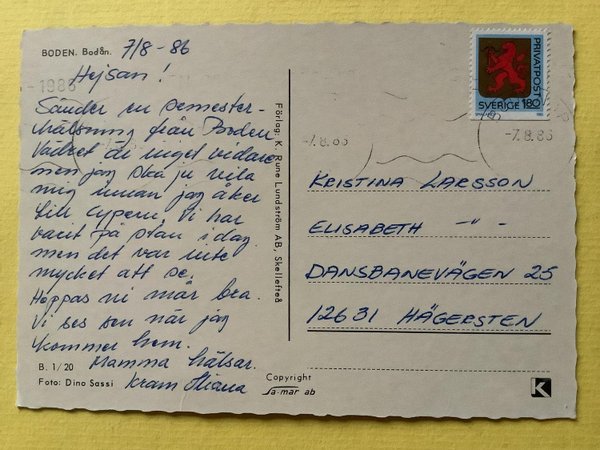 BODEN. Bodån.
7/8 - 86
Hejsan!
Sänder en semester-
hälsning från Boden
Vädret är inget vidare
men jag ska ju vila
mig innan jag åker
till Cypern. Vi har
varit på stan i dag
men det var inte
mycket att se.
Hoppas ni mår bra.
Vi ses sen när jag
kommer hem.
Mamma hälsar.
Kram
B. 1/20
Foto: Dino Sassi
Förlag: K. Rune Lundström AB, Skellefteå
Copyright
sa-mar ab
K
1986
-7.8.86
-7.8.86
PRIVATPOST
SVERIGE 180
KRISTINA LARSSON
ELISABETH -"-
DANSBANEVÄGEN 25
12631 HÄGERSTEN